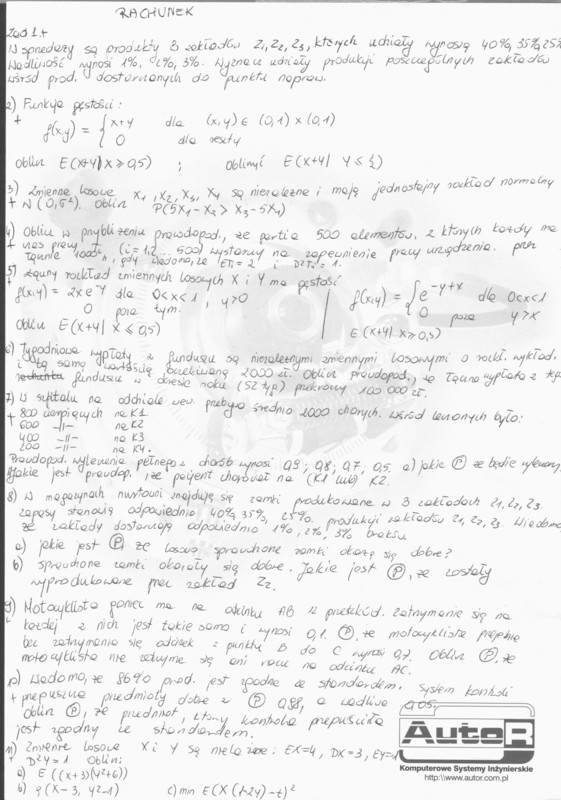 RACHUNEK
Zad 1.
1) W sprzedaży są produkty 3 zakładów Z1, Z2, Z3, których udziały wynoszą 40%, 35%, 25%
Wadliwość wynosi 1%, 2%, 3%. Wyznacz udziały produkcji poszczególnych zakładów
wśród prod. dostarczanych do punktu napraw.
2) Funkcja gęstości:
+ f(x,y) = { x+y dla (x,y) ∈ (0,1) × (0,1)
0 dla reszty
Oblicz E(X+Y | X ≥ 0,5) ; Obliczyć E(X+Y | Y ≤ ½)
3) Zmienne losowe X1, X2, X3, X4 są niezależne i mają jednostajny rozkład normalny
+ N(0, σ²). Oblicz P(5X1 - X2 > X3 - 5X1)
4) Oblicz w przybliżeniu prawdopod., że partia 500 elementów, z których każdy ma
+ czas pracy Ti (i=1,2 ... 500) wystarczy na zapewnienie pracy urządzenia przez
łącznie h, gdy wiadomo, że ETi = 2 i D²Ti = 1.
5) Łączny rozkład zmiennych losowych X i Y ma gęstość
f(x,y) = 2xe^-y dla 0<x<1, y>0
0 poza tym.
Oblicz E(X+Y | X ≤ 0,5)
f(x,y) = { e^-y+x dla 0<x<1
0 poza y>x
E(X+Y | X ≥ 0,5)
6) Tygodniowe wypłaty z funduszu są niezależnymi zmiennymi losowymi o rozkł. wykład.
i tą samą wartością oczekiwaną 2000 zł. Oblicz prawdopod., że łączna wypłata z
funduszu w okresie roku (52 tyg) przekroczy 100 000 zł.
7) W szpitalu na oddziale wew. przebywa średnio 2000 chorych. Wśród leczonych było:
+ 800 cierpiących na K1
600 -||- na K2
400 -||- na K3
200 -||- na K4.
Prawdopod. wyleczenia pełnego z chorób wynosi 0,9; 0,8; 0,7; 0,5. a) jakie (P) że będzie wyleczony
Jakie jest prawdop. że pacjent chorował na (K1 lub) K2.
8) W magazynach hurtowni znajdują się zamki produkowane w 3 zakładach Z1, Z2, Z3.
Zapasy stanowią odpowiednio 40%, 35%, 25% produkcji zakładów Z1, Z2, Z3. Wiadomo,
że zakłady dostarczają odpowiednio 1%, 2%, 3% braków
a) jakie jest (P), że losowo sprawdzone zamki okażą się dobre?
b) sprawdzone zamki okazały się dobre. Jakie jest (P), że zostały
wyprodukowane przez zakład Z2.
9) Motocyklista goniec ma na odcinku AB 12 przeszkód. Zatrzymanie się na
każdej z nich jest takie samo i wynosi 0,1. (P), że motocyklista przejedzie
bez zatrzymania się odcinek z punktu B do C wynosi 0,7. Oblicz (P), że
motocyklista nie zatrzyma się ani razu na odcinku AC.
10) Wiadomo, że 86% prod. jest zgodne ze standardem. System kontroli
+ przepuszcza przedmioty dobre z (P) 0,98, a wadliwe 0,05.
Oblicz (P), że przedmiot, który kontrola przepuściła
jest zgodny ze standardem.
11) Zmienne losowe X i Y są niezależne: EX=4, DX=3, EY=1
+ D²Y=1 Oblicz:
a) E((X+3)(Y²+6))
b) ρ(X-3, Y²-1) c) min E(X(1-2Y)-t)²
AutoR
Komputerowe Systemy Inżynierskie
http:\\www.autor.com.pl